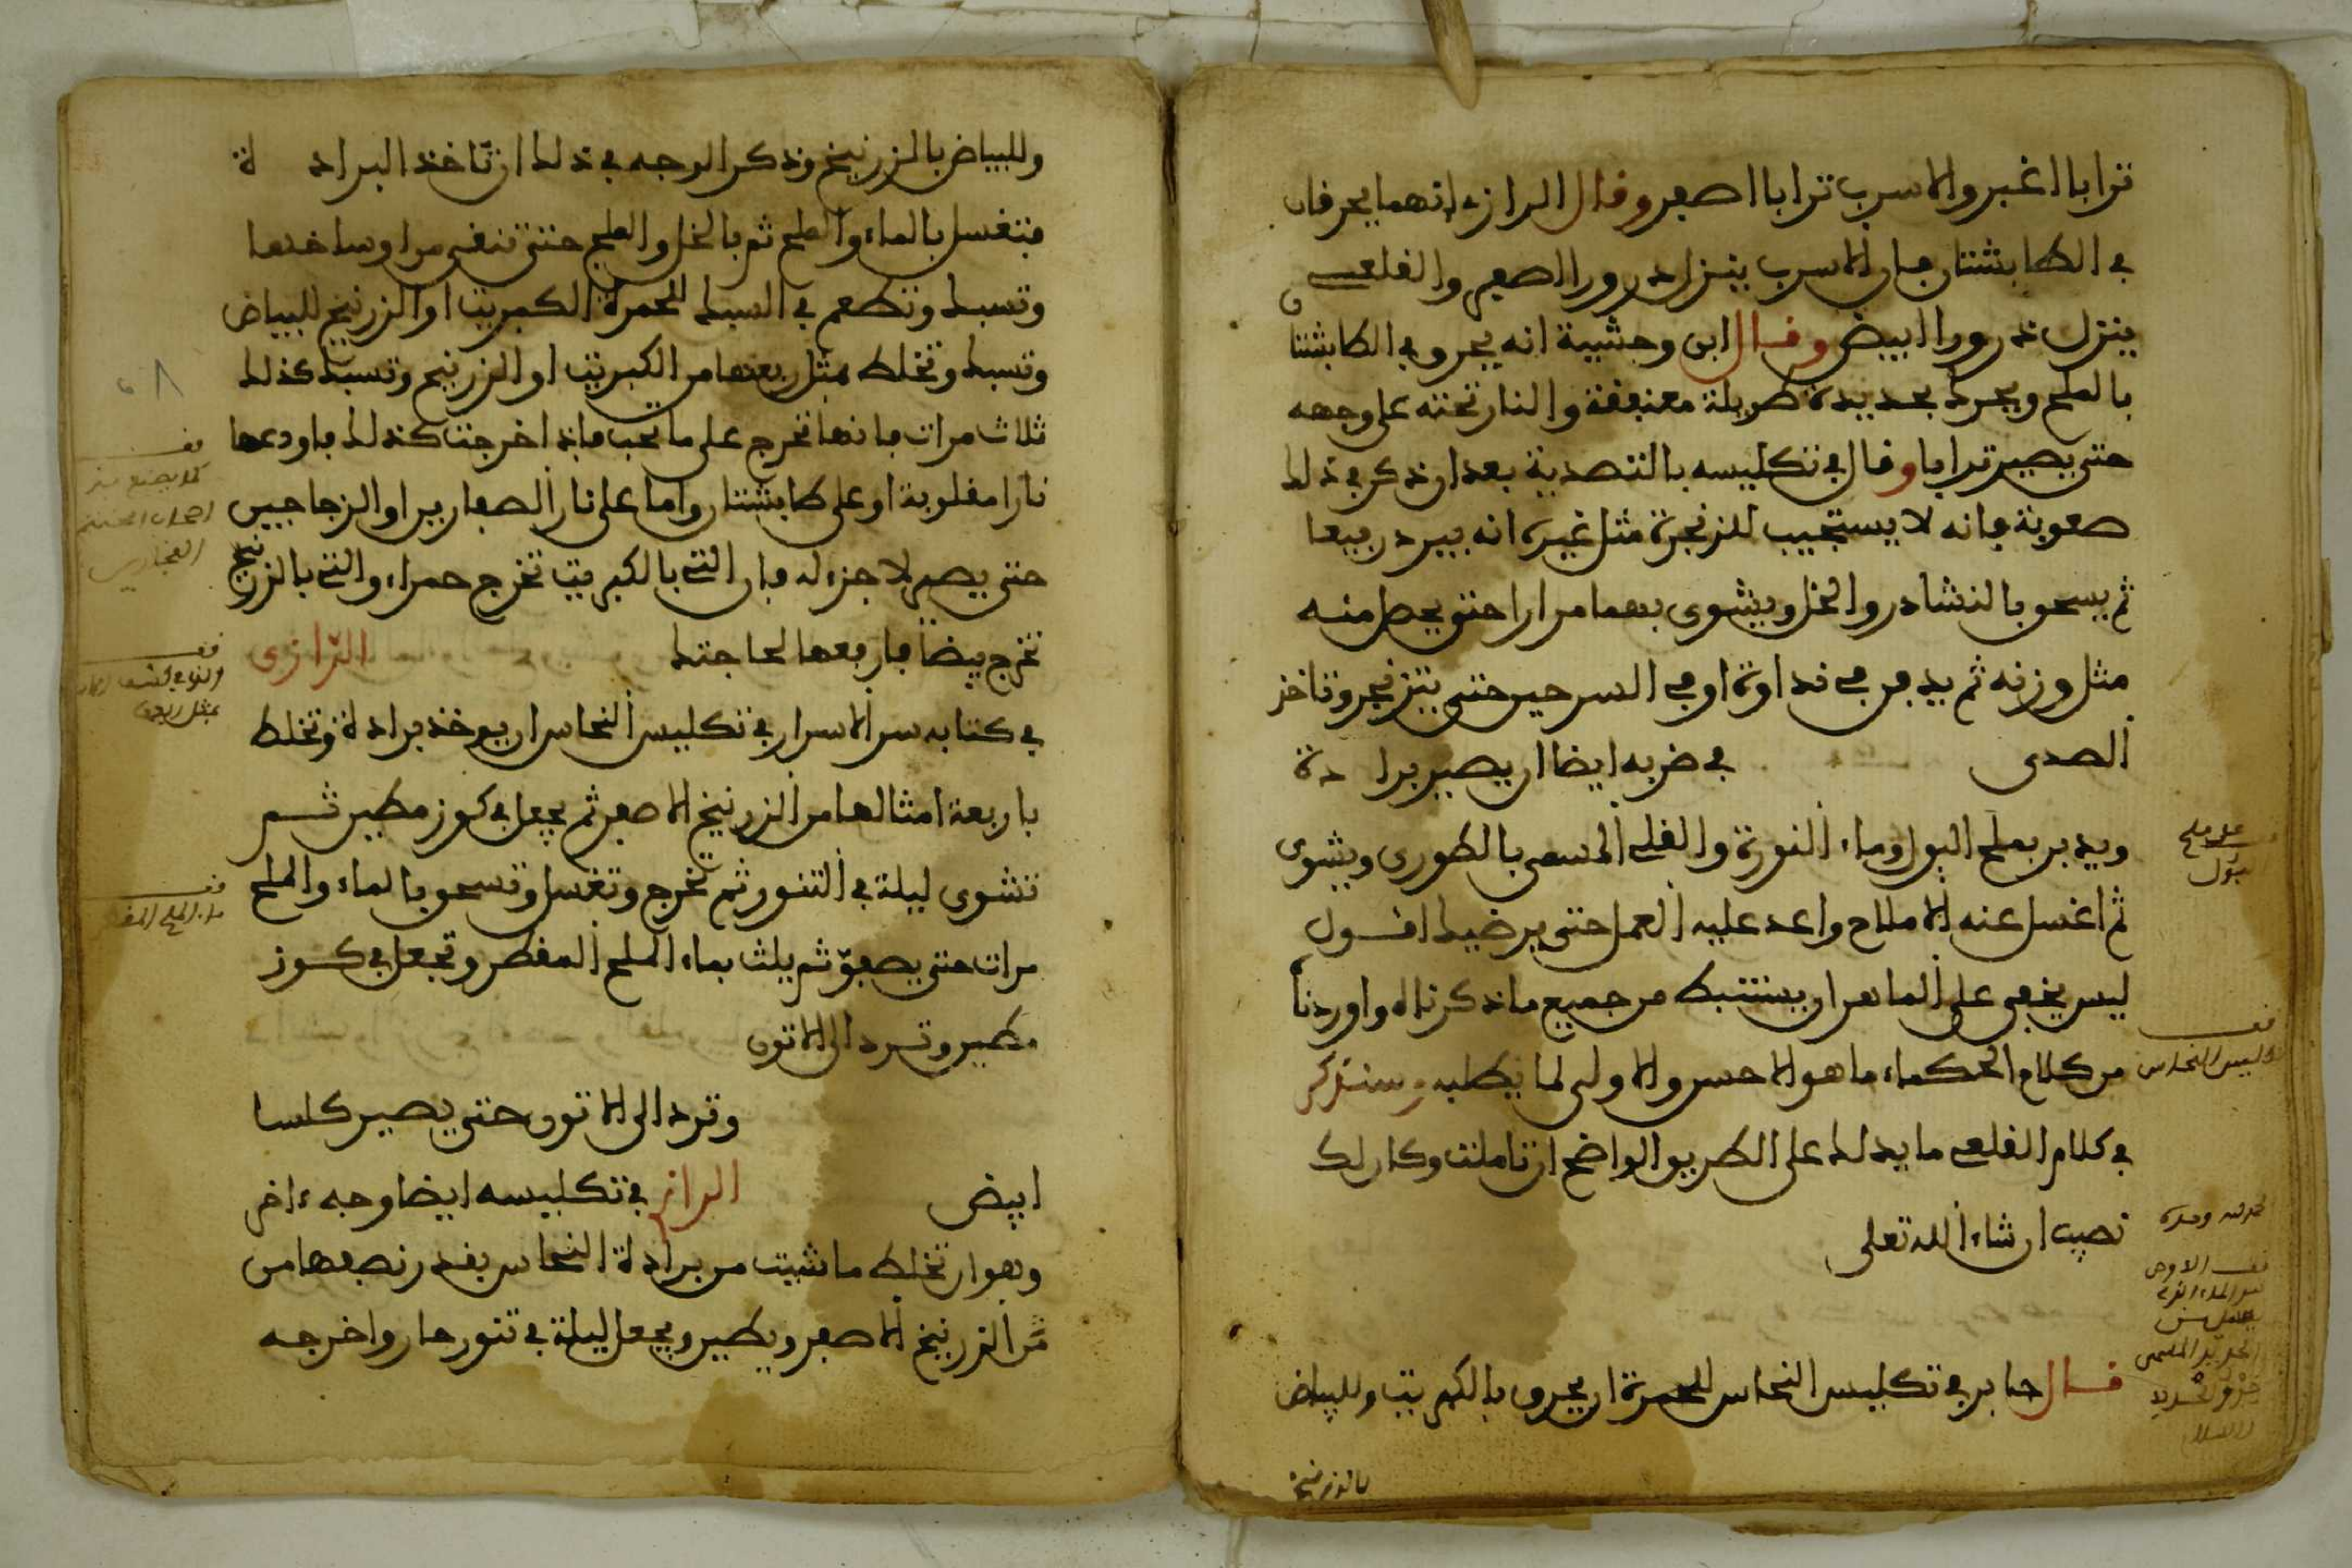 ترابا اغبر والاسرب ترابا اصفر وقال الرازي انهما يحرقان
في الطابشتان فان الاسرب ينزل ذرورا اصفر والقلعي
ينزل ذرورا ابيض وقال ابن وحشية انه يحرق في الطابشتان
بالملح ويحرك بحديدة طويلة معنقفة والنار تحته على وجهه
حتى يصير ترابا وقال في تكليسه بالتصدية بعد ان ذكر في ذلك
صعوبة فانه لا يستجيب للزنجرة مثل غيره انه يبرد ربيعا
ثم يسحق بالنشادر والخل ويشوى بهما مرارا حتى يحط منه
مثل وزنه ثم يدفن في نداوة او في السرجين حتى يتزنجر وتاخذ
الصدى في ضربه ايضا ان يصير برادة
ويدبر بملح البول وماء النورة والقلي المسمى بالطوري ويشوى
ثم اغسل عنه الاملاح واعد عليه العمل حتى يرضيك اقول
ليس يخفى على الماهر ان يستنبط من جميع ما ذكرناه واوردنا
من كلام الحكماء ما هو الاحسن والاولى لما يطلبه وسنذكر
في كلام القلعي ما يدلك على الطريق الواضح ان تاملت وكان لك
نصيب ان شاء الله تعلى
قال جابر في تكليس النحاس للحمرة ان يحرق بالكبريت وللبياض
بالزرنيخ
عمل ملح
البول
قف
تكليس النحاس
وللبياض بالزرنيخ وذكر الوجه في ذلك ان تاخذ البرادة
فتغسل بالماء والملح ثم بالخل والملح حتى تنقى من اوساخها
وتسبك وتطعم في السبك للحمرة الكبريت او الزرنيخ للبياض
وتسبك وتخلط مثل ربعها من الكبريت او الزرنيخ وتسبك كذلك
ثلاث مرات فانها تخرج على ما يحب فاذا خرجت كذلك فاودعها
نارا مقلوبة او على طابشتان واما على نار الصفارين او الزجاجين
حتى يصير لا جزء له فان التي بالكبريت تخرج حمراء والتي بالزرنيخ
تخرج بيضا فارفعها لحاجتك الرازي
في كتابه سر الاسرار في تكليس النحاس ان يوخذ برادة وتخلط
باربعة امثالها من الزرنيخ الاصفر ثم يجعل في كوز مطين ثم
تشوى ليلة في التنور ثم تخرج وتغسل وتسحق بالماء والملح
مرات حتى يصفو ثم يلث بماء الملح المقطر وتجعل في كوز
مطين وترد الى الاتون
وترد الى الاتون حتى يصير كلسا
ابيض الرازي في تكليسه ايضا وجه ءاخر
وهو ان تخلط ما شيت من برادة النحاس بقدر نصفها من
من الزرنيخ الاصفر ويطين ويجعل ليلة في تنور حار واخرجه
قف
قف
قف
ماء الملح المقطر